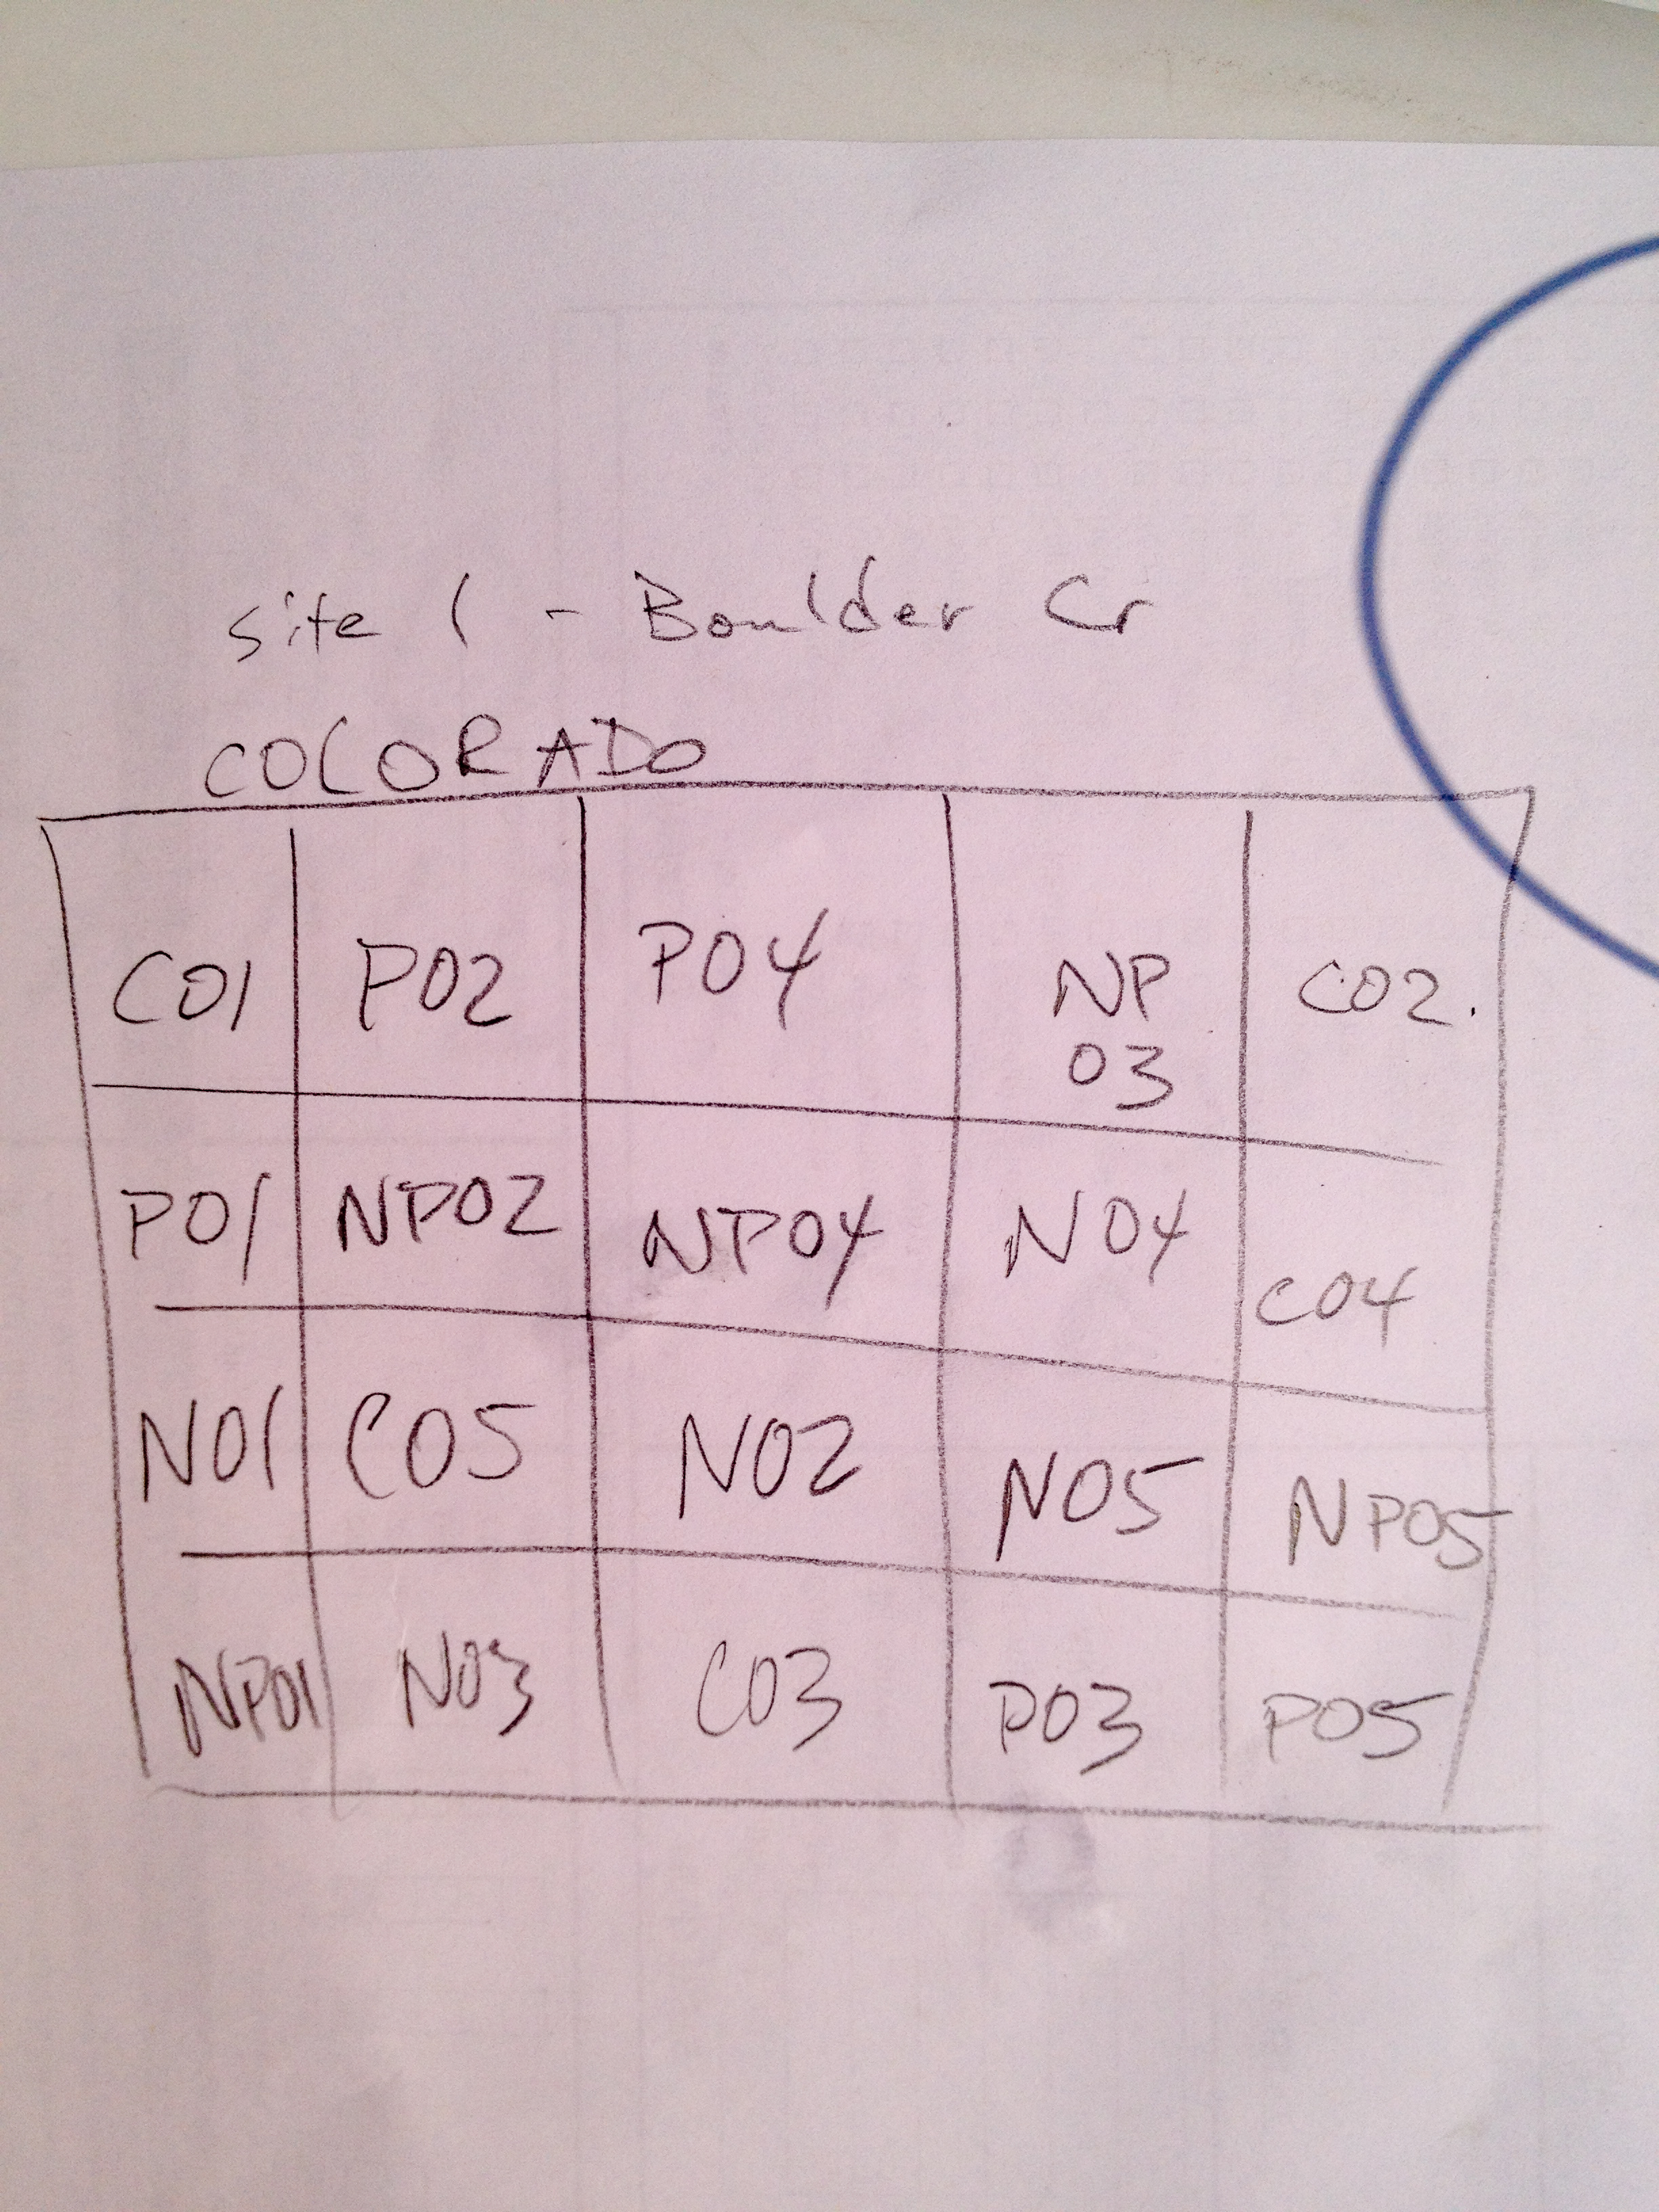 Site 1 - Boulder Cr
COLORADO
C01 P02 P04 NP 03 C02.
P01 NP02 NP04 N04 C04
N01 C05 N02 N05 NP05
NP01 N03 C03 P03 P05